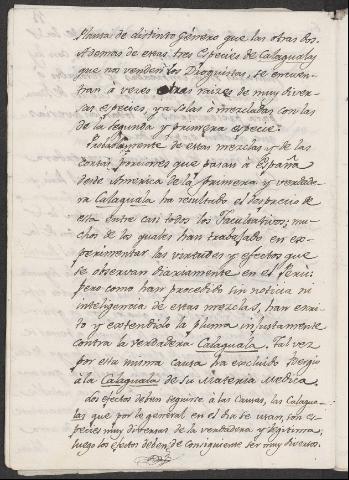 Planta de distinto género que las otras dos.
Ademas de estas tres Especies de Calagualas,
que nos venden los Droguistas, se encuen-
tran à veces otras raices de muy diver-
sas especies, ya solas ò mezcladas con las
de la segunda y primera especie.
Justamente de estas mezclas y de las
cortas porciones que pasan à España
desde America de la primera y verdade-
ra Calaguala ha resultado el desprecio de
esta entre casi todos los Facultativos; mu-
chos de los quales han trabajado en ex-
perimentar las virtudes y efectos que
se observan diariamente en el Perú;
pero como han procedido sin noticia ni
inteligencia de estas mezclas, han escri-
to y extendido la pluma injustamente
contra la verdadera Calaguala. Tal vez
por esta misma causa ha excluido Bergio
à la Calaguala de su Materia Medica.
Los efectos deben seguirse à las Causas, las Calagua-
las que por lo general en el dia se usan, son es-
pecies muy diversas de la verdadera y legitima,
luego los efectos deben de consiguiente ser muy diversos.